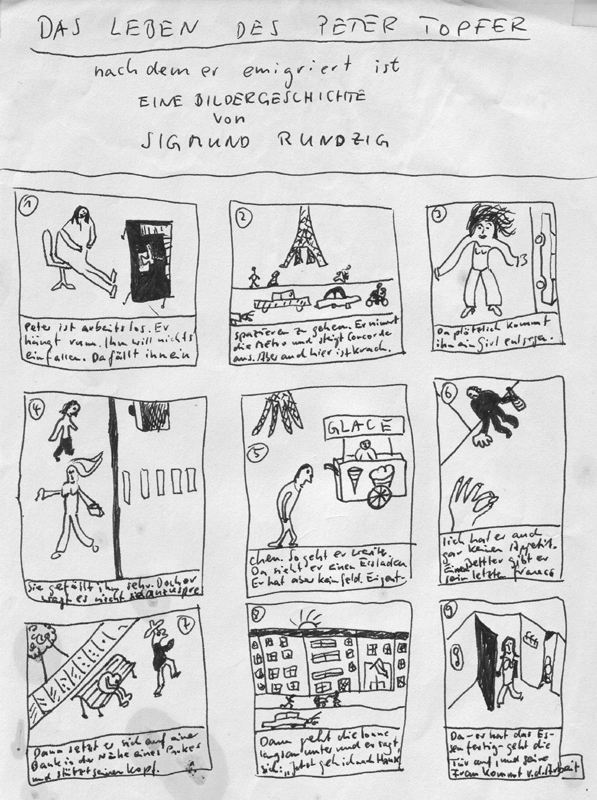 DAS LEBEN DES PETER TOPFER
nach dem er emigriert ist
EINE BILDERGESCHICHTE
von
SIGMUND RUNDZIG
1
Peter ist arbeitslos. Er
hängt rum. Ihm will nichts
einfallen. Da fällt ihm ein
2
spazieren zu gehen. Er nimmt
die Metro und steigt Concorde
aus. Aber auch hier ist Krach.
3
Da plötzlich kommt
ihm ein Girl entgegen.
4
Sie gefällt ihm sehr. Doch er
wagt es nicht sie anzuspre
5
GLACE
chen. So geht er weiter.
Da sieht er einen Eisladen
Er hat aber kein Geld. Eigent-
6
lich hat er auch
gar keinen Appetit.
Einem Bettler gibt er
sein letzten Francs
7
Dann setzt er sich auf eine
Bank in der Nähe eines Parkes
und stützt seinen Kopf.
8
Dann geht die Sonne
langsam unter und er sagt
sich: "Jetzt geh ich nach Hause
9
Da - er hat das Es-
sen fertig - geht die
Tür auf, und seine
Frau kommt v. d. Arbeit